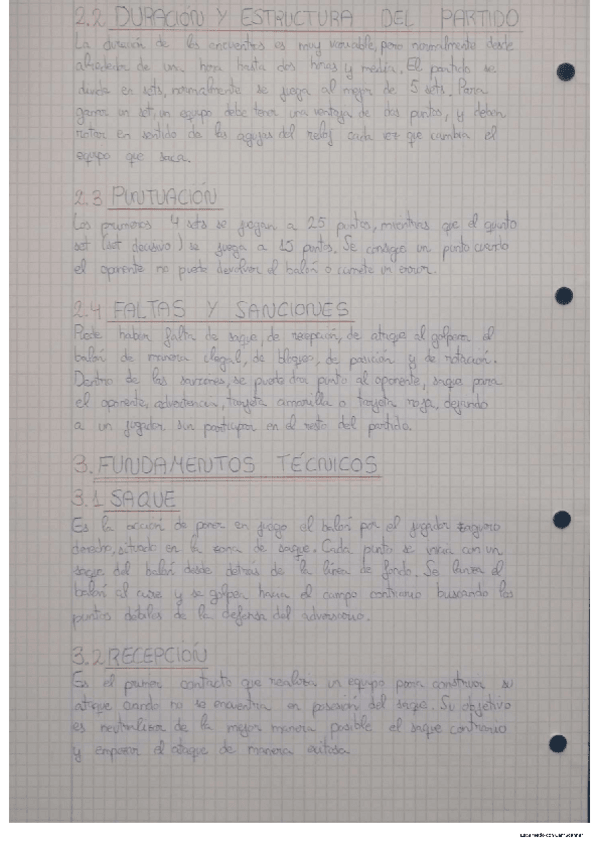 2.2 DURACIÓN Y ESTRUCTURA DEL PARTIDO
La duración de los encuentros es muy variable, pero normalmente desde
alrededor de una hora hasta dos horas y media. El partido se
divide en sets, normalmente se juega al mejor de 5 sets. Para
ganar un set, un equipo debe tener una ventaja de dos puntos, y deben
rotar en sentido de las agujas del reloj cada vez que cambia el
equipo que saca.
2.3 PUNTUACIÓN
Los primeros 4 sets se juegan a 25 puntos, mientras que el quinto
set (set decisivo) se juega a 15 puntos. Se consigue un punto cuando
el oponente no puede devolver el balón o comete un error.
2.4 FALTAS Y SANCIONES
Puede haber falta de saque, de recepción, de ataque al golpear el
balón de manera ilegal, de bloqueo, de posición y de rotación.
Dentro de las sanciones, se puede dar punto al oponente, saque para
el oponente, advertencia, tarjeta amarilla o tarjeta roja, dejando
a un jugador sin participar en el resto del partido.
3. FUNDAMENTOS TÉCNICOS
3.1 SAQUE
Es la acción de poner en juego el balón por el jugador zaguero
derecho, situado en la zona de saque. Cada punto se inicia con un
saque del balón desde detrás de la línea de fondo. Se lanza el
balón al aire y se golpea hacia el campo contrario buscando los
puntos débiles de la defensa del adversario.
3.2 RECEPCIÓN
Es el primer contacto que realiza un equipo para construir su
ataque cuando no se encuentra en posesión del saque. Su objetivo
es neutralizar de la mejor manera posible el saque contrario
y empezar el ataque de manera exitosa.